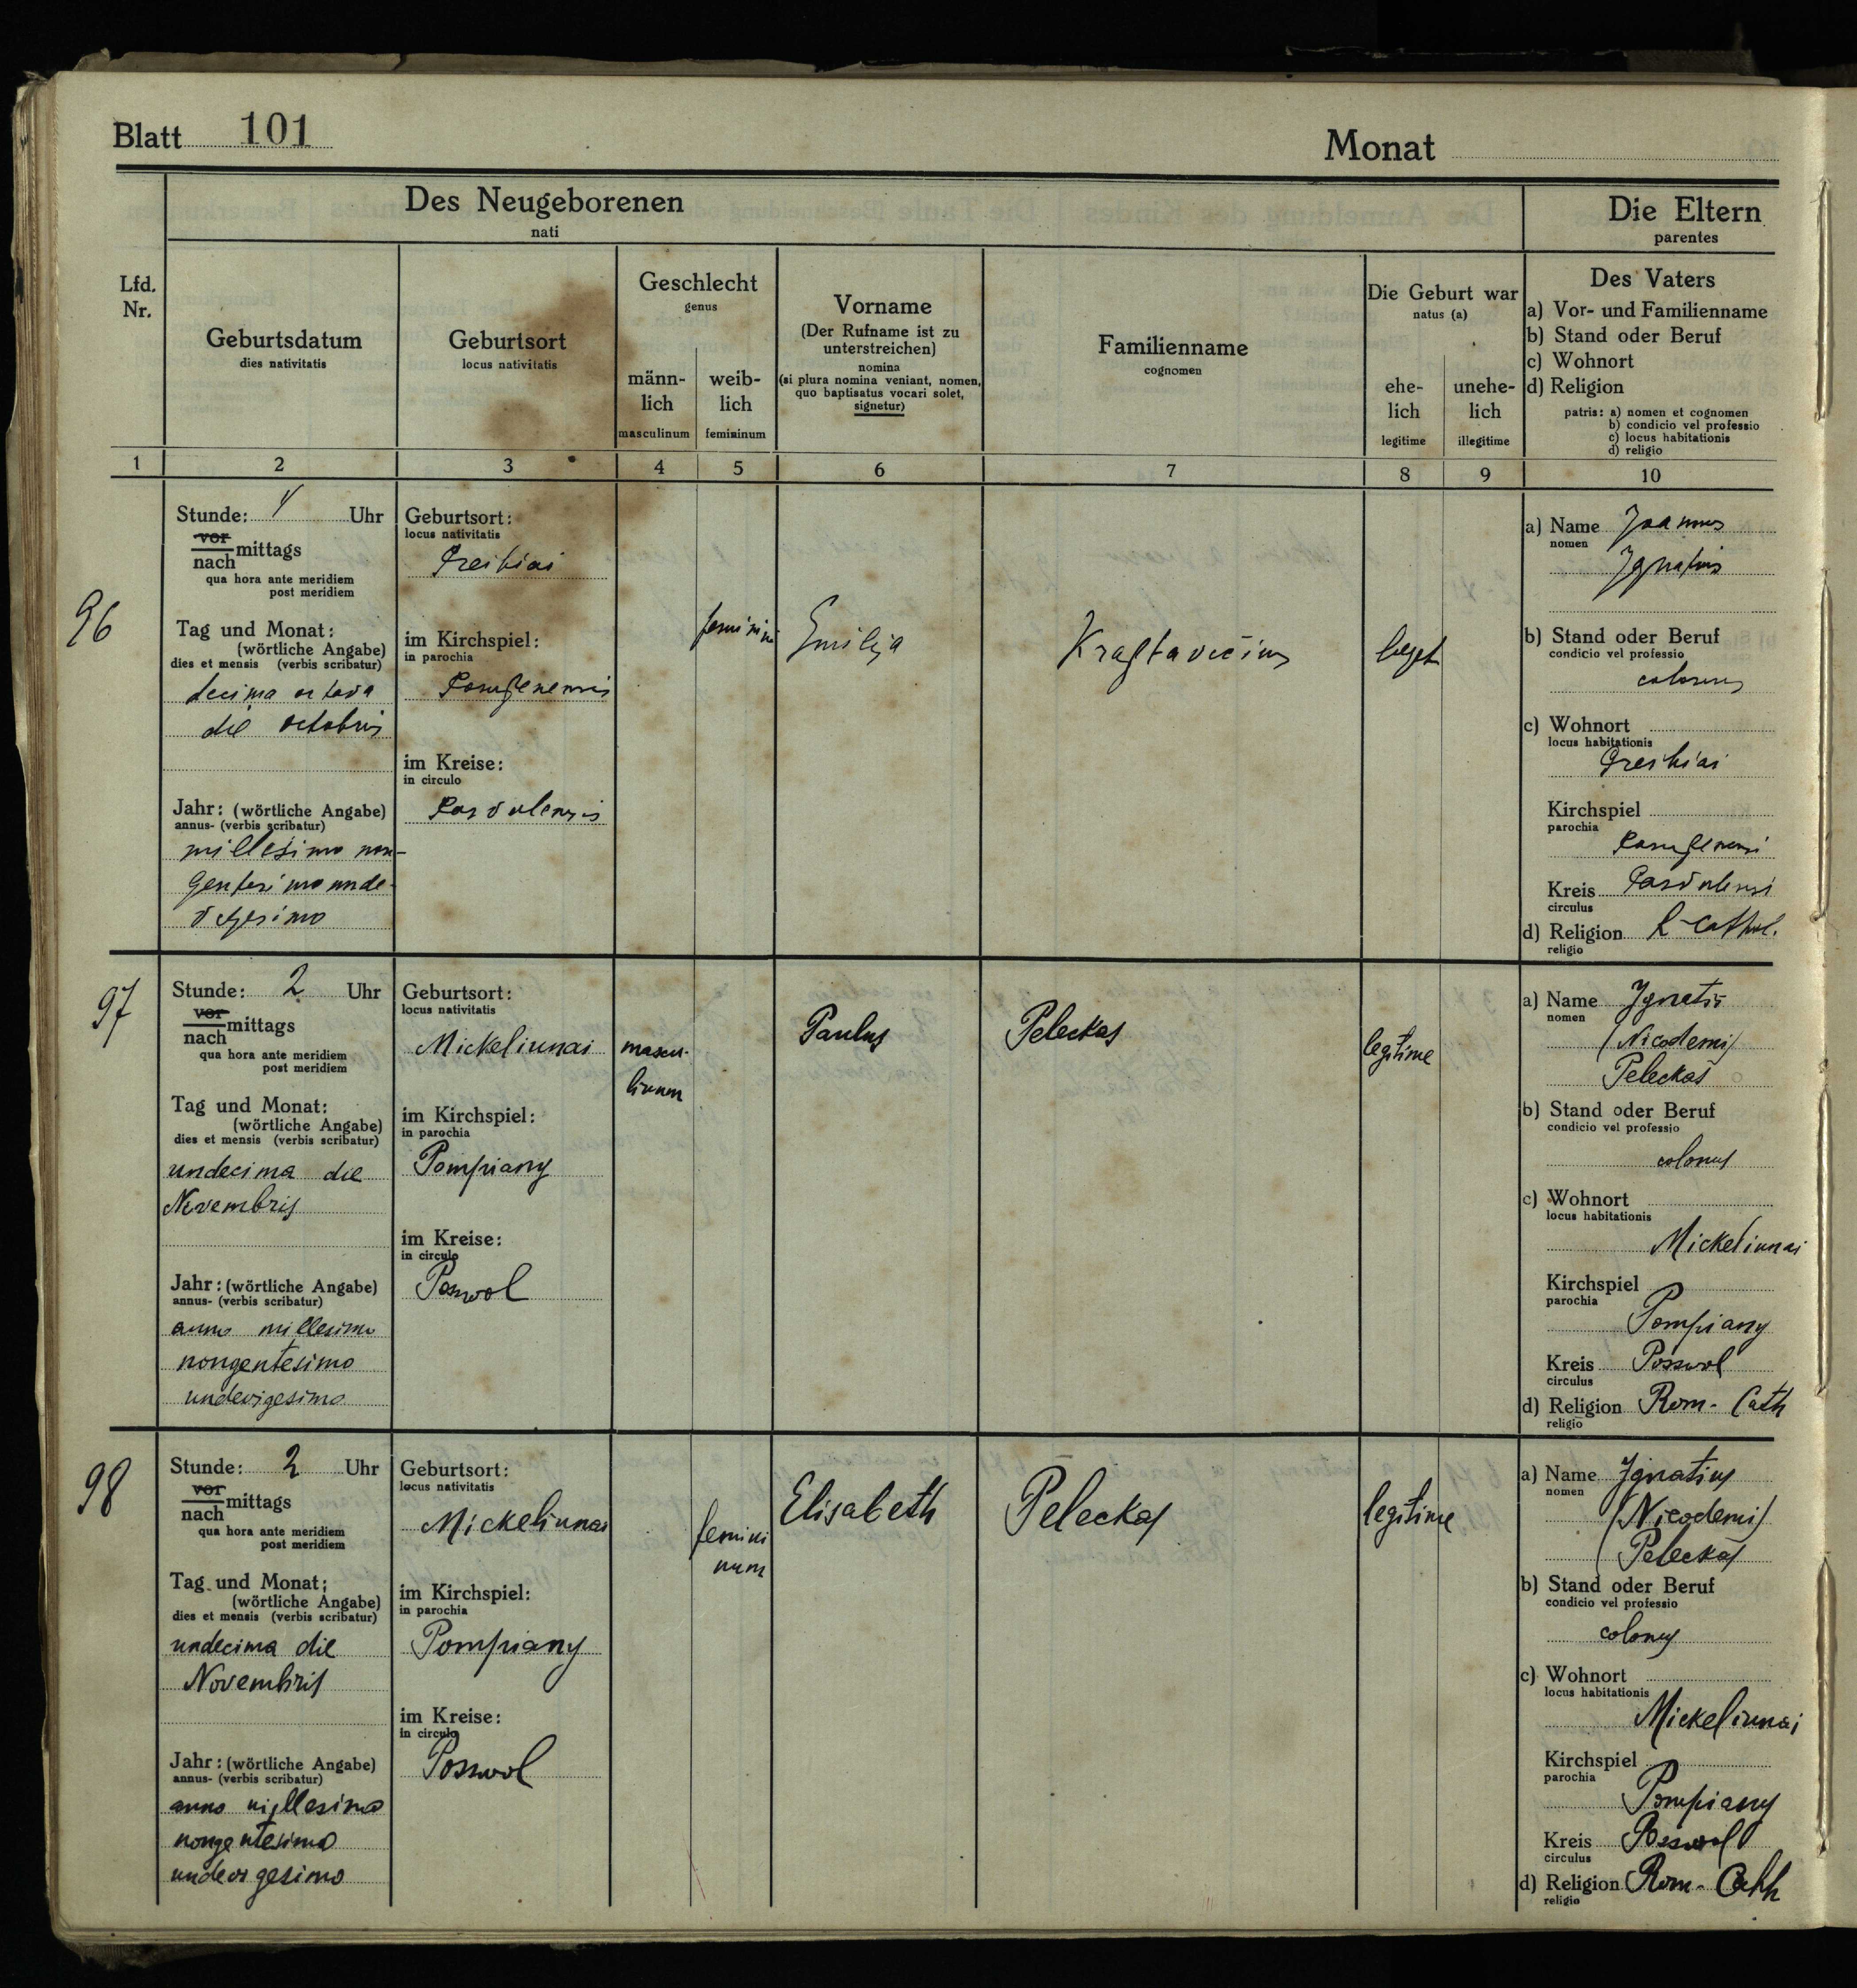 Blatt 101
Monat
Des Neugeborenen
nati
Die Eltern
parentes
Lfd.
Nr.
Geburtsdatum
dies nativitatis
Geburtsort
locus nativitatis
Geschlecht
genus
männ-
lich
masculinum
weib-
lich
femininum
Vorname
(Der Rufname ist zu
unterstreichen)
nomina
(si plura nomina veniant, nomen,
quo baptisatus vocari solet,
signetur)
Familienname
cognomen
Die Geburt war
natus (a)
ehe-
lich
legitime
unehe-
lich
illegitime
Des Vaters
a) Vor- und Familienname
b) Stand oder Beruf
c) Wohnort
d) Religion
patris: a) nomen et cognomen
b) condicio vel professio
c) locus habitationis
d) religio
1 2 3 4 5 6 7 8 9 10
96
Stunde: Uhr
vor
nach mittags
qua hora ante meridiem
post meridiem
Tag und Monat:
(wörtliche Angabe)
dies et mensis (verbis scribatur)
decima octava
die octobris
Jahr: (wörtliche Angabe)
annus- (verbis scribatur)
millesimo non-
gentesimo unde-
vigesimo
Geburtsort:
locus nativitatis
im Kirchspiel:
in parochia
im Kreise:
in circulo
Posvolensis
feminin
Emilija
Kraftavičius
legit
a) Name Joannes
nomen
Ignatius
b) Stand oder Beruf
condicio vel professio
colonus
c) Wohnort
locus habitationis
Kirchspiel
parochia
Kreis Posvolensi
circulus
d) Religion R-Cathol.
religio
97
Stunde: 2 Uhr
vor
nach mittags
qua hora ante meridiem
post meridiem
Tag und Monat:
(wörtliche Angabe)
dies et mensis (verbis scribatur)
undecima die
Novembris
Jahr: (wörtliche Angabe)
annus- (verbis scribatur)
anno millesimo
nongentesimo
undevigesimo
Geburtsort:
locus nativitatis
Mickeliunai
im Kirchspiel:
in parochia
Pompiany
im Kreise:
in circulo
Poswol
mascu-
linum
Paulus
Peleckas
legitime
a) Name Ignatis
nomen
(Nicodemi)
Peleckas
b) Stand oder Beruf
condicio vel professio
colonus
c) Wohnort
locus habitationis
Mickeliunai
Kirchspiel
parochia
Pompiany
Kreis Posswol
circulus
d) Religion Rom- Cath
religio
98
Stunde: 2 Uhr
vor
nach mittags
qua hora ante meridiem
post meridiem
Tag und Monat:
(wörtliche Angabe)
dies et mensis (verbis scribatur)
undecima die
Novembris
Jahr: (wörtliche Angabe)
annus- (verbis scribatur)
anno millesimo
nongentesimo
undevigesimo
Geburtsort:
locus nativitatis
Mickeliunai
im Kirchspiel:
in parochia
Pompiany
im Kreise:
in circulo
Posswol
femini
num
Elisabeth
Peleckas
legitime
a) Name Ignatius
nomen
(Nicodemi)
Peleckas
b) Stand oder Beruf
condicio vel professio
colonus
c) Wohnort
locus habitationis
Mickeliunai
Kirchspiel
parochia
Pompiany
Kreis Poswol
circulus
d) Religion Rom- Cath
religio